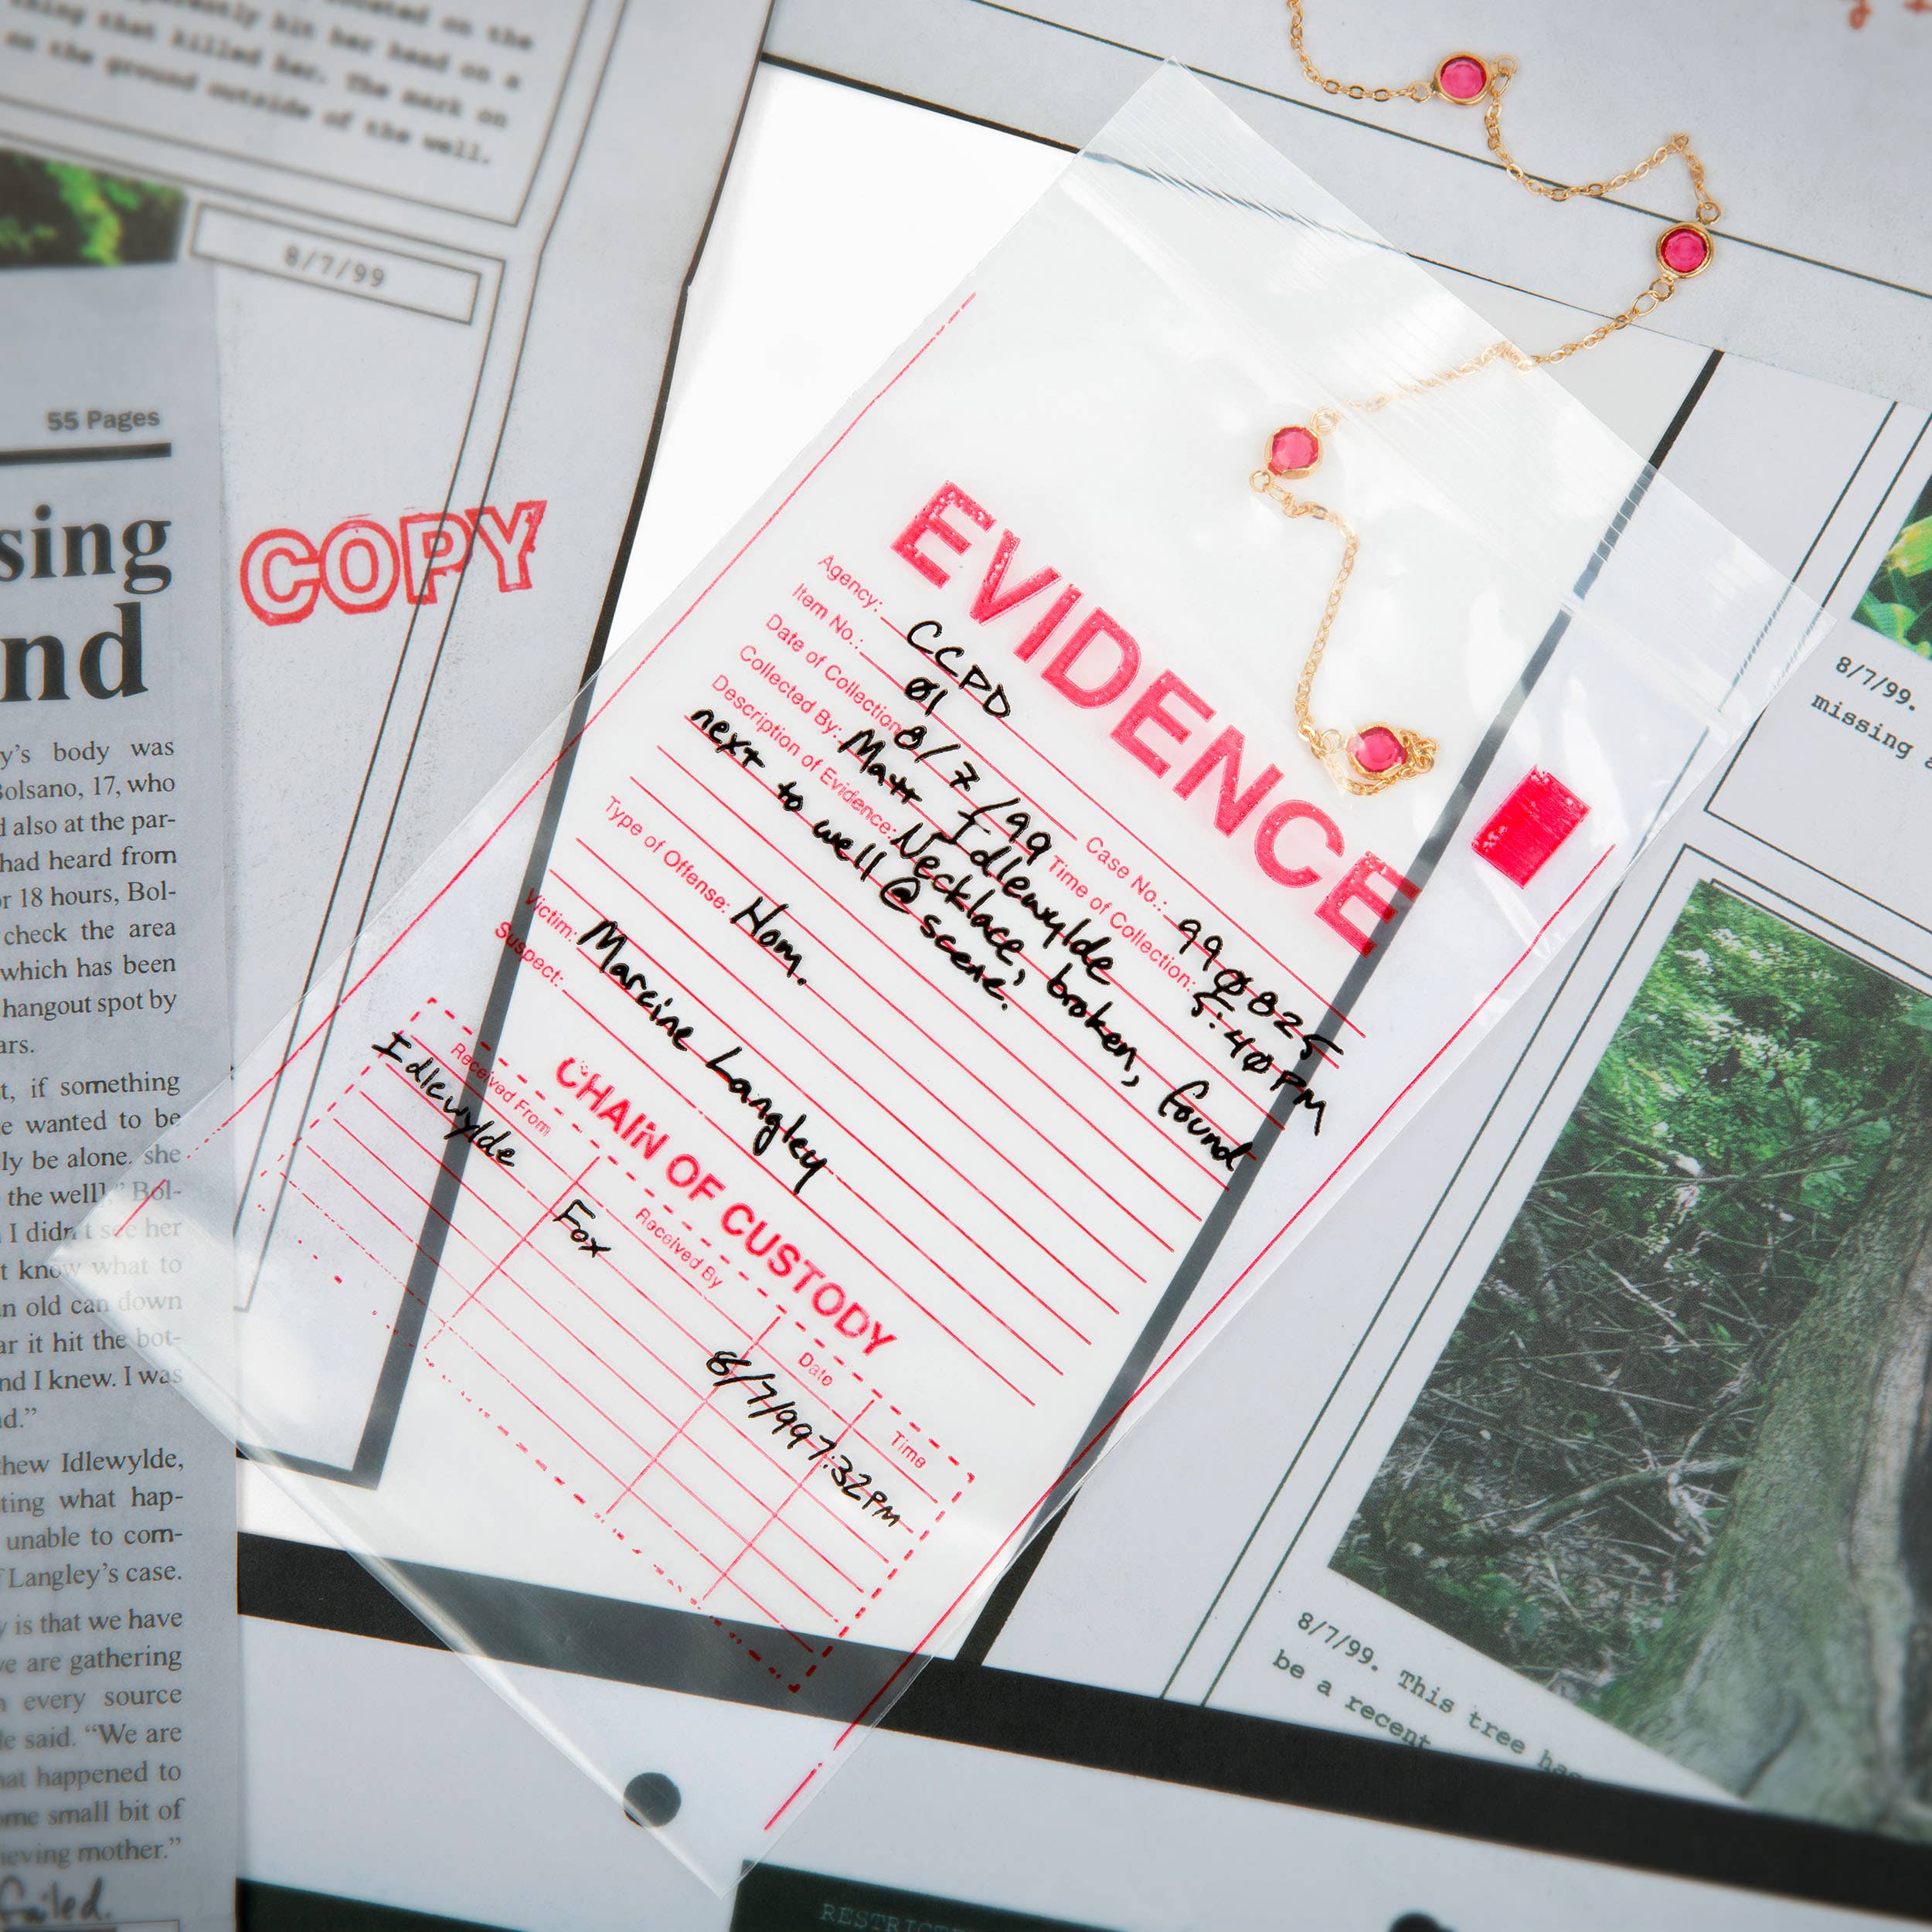 located on the
apparently hit her head on a
thing that killed her. The mark on
on the ground outside of the well.
8/7/99
55 Pages
sing
nd
COPY
y's body was
Bolsano, 17, who
d also at the par-
had heard from
or 18 hours, Bol-
check the area
which has been
hangout spot by
ars.
t, if something
e wanted to be
ly be alone. she
the well]." Bol-
I didn't see her
t know what to
n old can down
ar it hit the bot-
nd I knew. I was
d."
hew Idlewylde,
ting what hap-
unable to com-
Langley's case.
y is that we have
ve are gathering
every source
le said. "We are
hat happened to
ome small bit of
ieving mother."
failed.
EVIDENCE
Agency: CCPD Case No.: 990825
Item No.: 01
Date of Collection: 8/7/99 Time of Collection: 5:40PM
Collected By: Matt Idlewylde
Description of Evidence: Necklace, broken, found
next to well @ scene.
Type of Offense: Hom.
Victim: Marcine Langley
Suspect:
CHAIN OF CUSTODY
Received From Received By Date Time
Idlewylde Fox 8/7/99 7:32PM
8/7/99.
missing
8/7/99. This tree has
be a recent